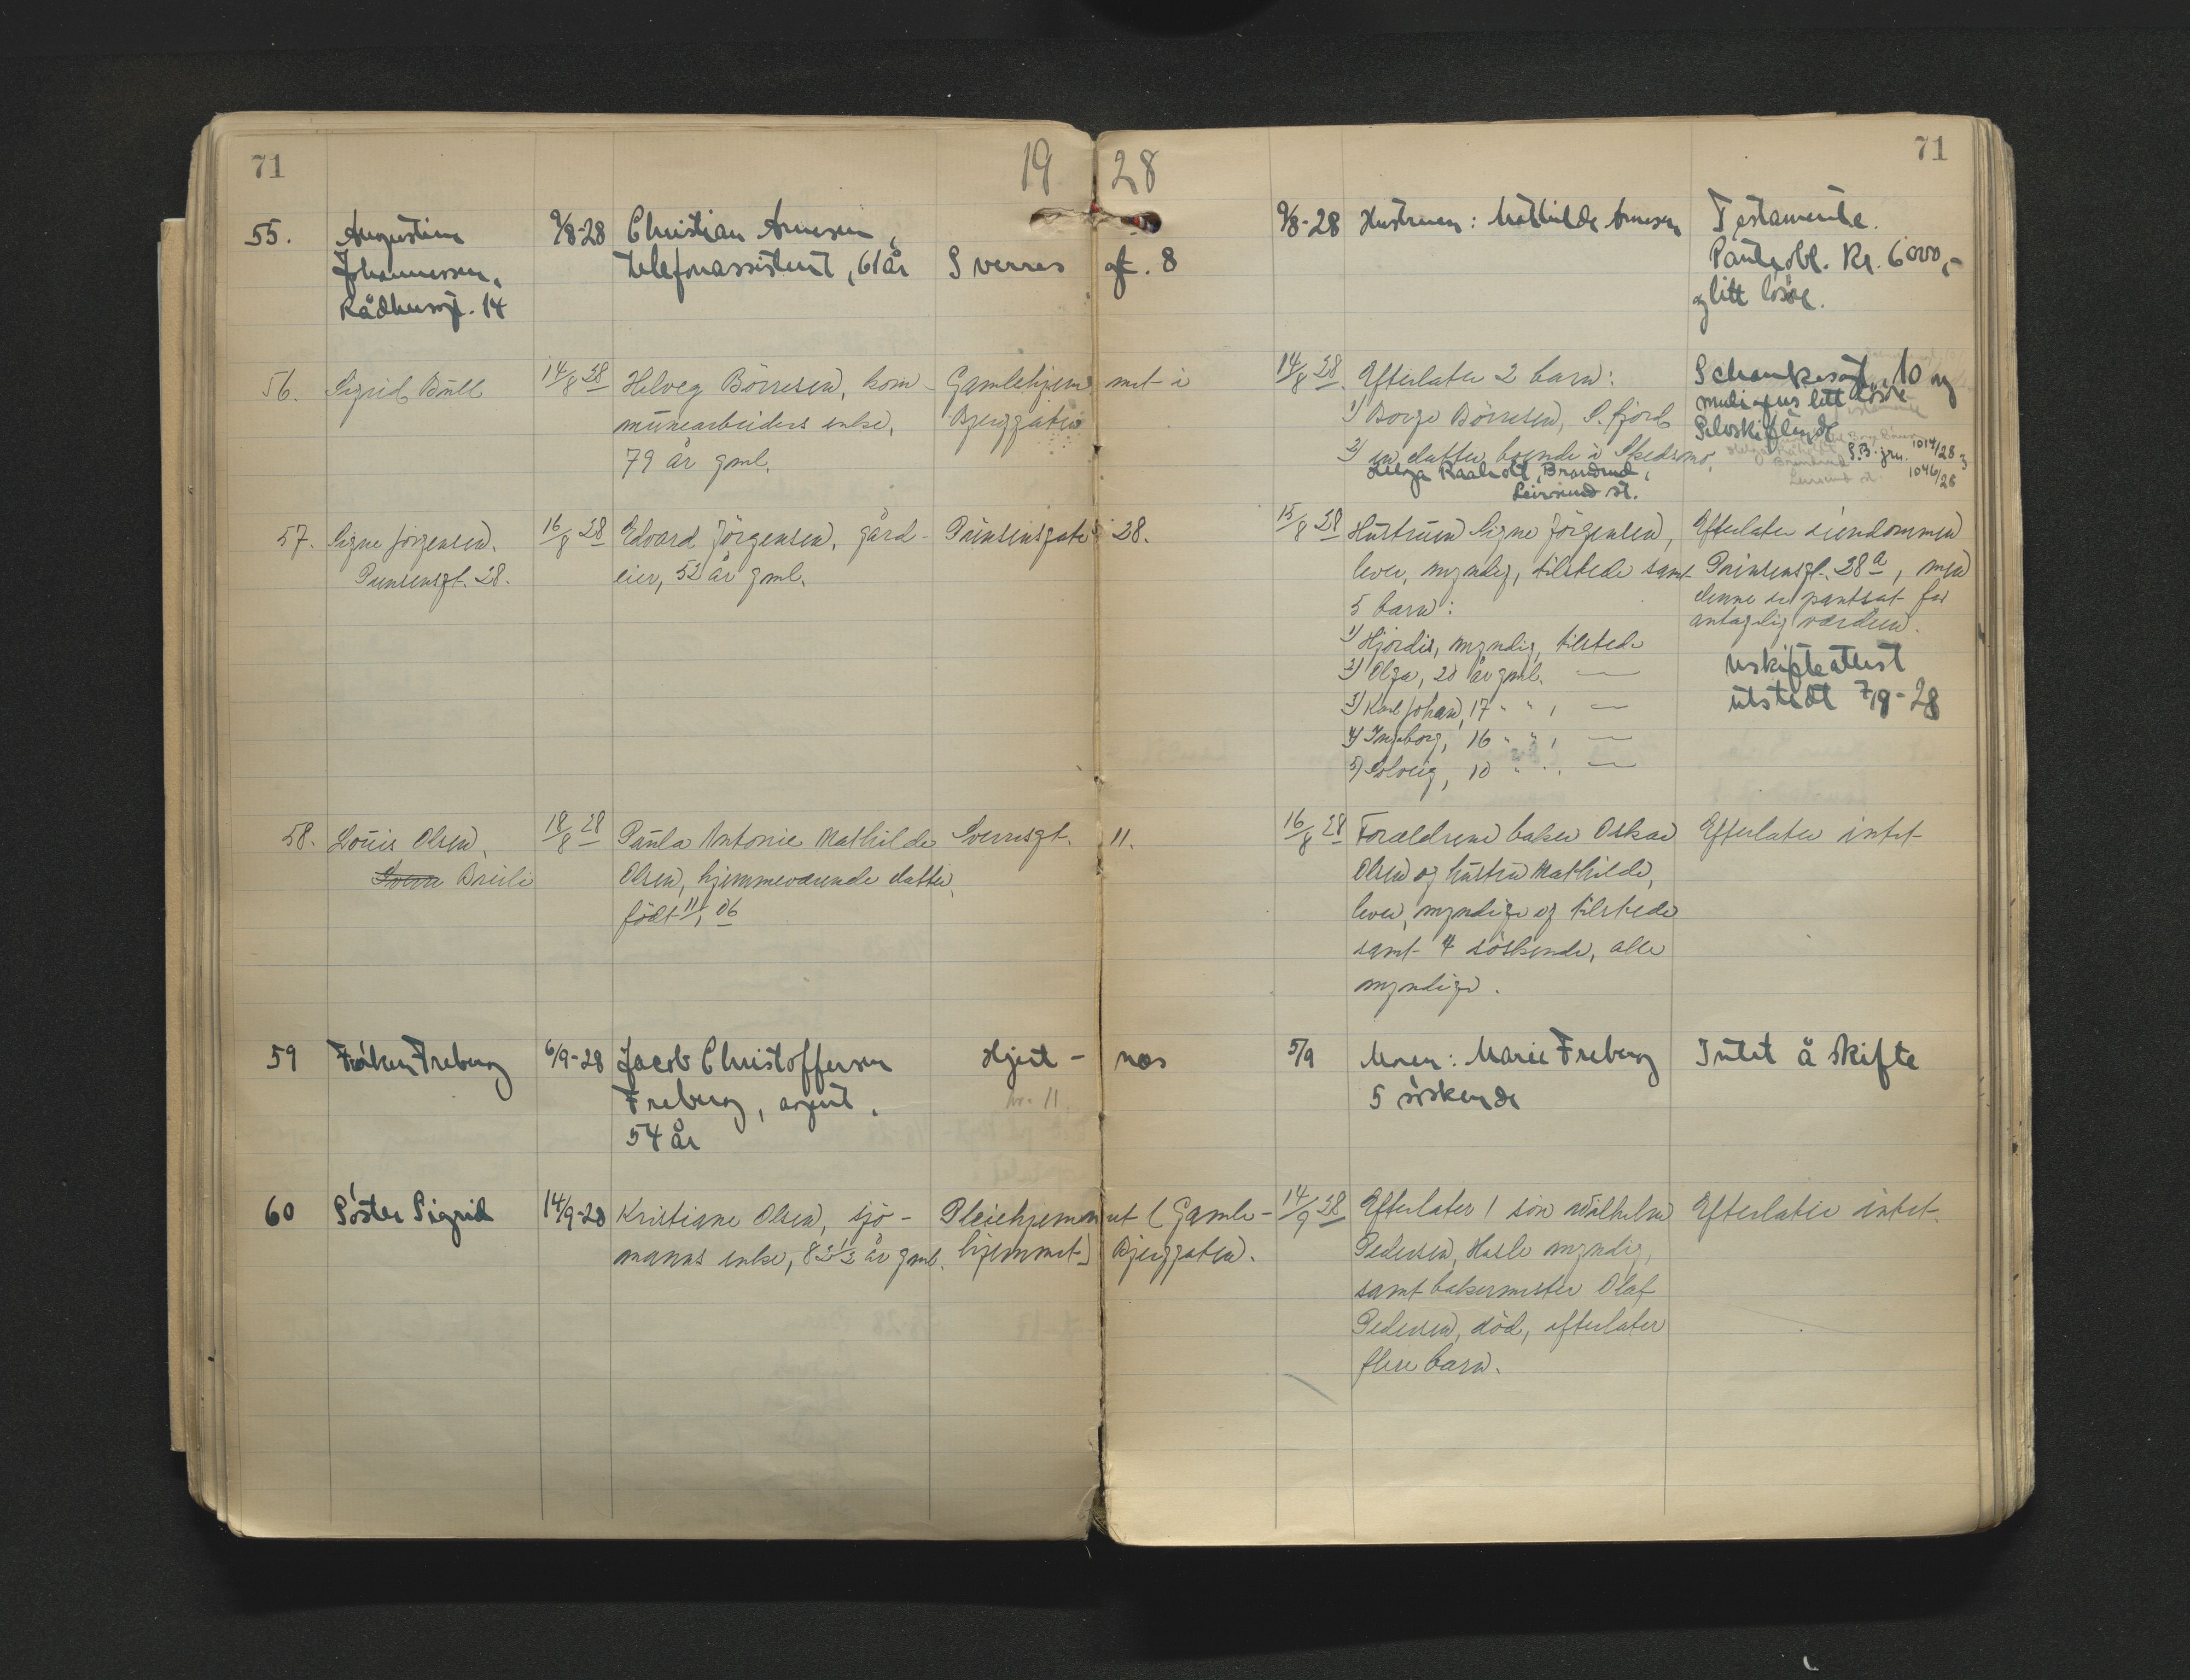 71
19 28
71
55. Augustine Johannessen, Rådhusgt. 14
9/8-28
Christian Arnesen,
telefonassistent, 61 år
Sverres gt. 8
9/8-28
Hustruen: Mathilde Arnesen
Testamente.
Panteobl. Kr. 6000,-
og litt løsøre.
56. Sigrid Bull
14/8 28
Helveg Börresen, kom-
munearbeiders enke,
79 år gml.
Gamlehjemmet i
Bjerggaten
14/8 28.
Efterlater 2 barn:
1) Borge Börresen, S.fjord
2) en datter boende i Skedsmo.
Helga Raaholt, Brandrud,
Leirsund st.
Schankesgt. 10 og
muligens litt løsøre
Selvskiftende
S.B. jrn. 1014/28 og
1046/28
57. Signe Jörgensen.
Prinsensgt. 28.
16/8 28
Edvard Jörgensen, gård-
eier, 52 år gml.
Prinsensgate 28.
15/8 28
Hustruen Signe Jörgensen,
lever, myndig, tilstede samt
5 barn:
1) Hjördis, myndig, tilstede
2) Olga, 20 år gml. —
3) Karl Johan, 17 " " , —
4) Ingeborg, 16 " " , —
5) Solveig, 10 " " . —
Efterlater eiendommen
Prinsensgt. 28a, men
denne er pantsat for
antagelig værdien.
Uskifteattest
utstedt 7/9-28
58. Louis Olsen,
Sverre Breili
18/8 28
Paula Antonie Mathilde
Olsen, hjemmeværende datter,
født 11/1 06
Sverresgt. 11.
16/8 28
Forældrene baker Oskar
Olsen og hustru Mathilde,
lever, myndige og tilstede
samt 4 söskende, alle
myndige.
Efterlater intet
59 Frøken Freberg
6/9-28
Jacob Christoffersen
Freberg, agent,
54 år
Hjertnes
nr. 11
5/9
Moren: Marie Freberg
5 søskende
Intet å skifte
60 Søster Sigrid
14/9-28
Kristiane Olsen, sjö-
manns enke, 82½ år gml.
Pleiehjemmet (Gamle-
hjemmet) Bjerggaten.
14/9 28
Efterlater 1 sön Wilhelm
Pedersen, Hasle myndig,
samt bakermester Olaf
Pedersen, död, efterlater
flere barn.
Efterlater intet.